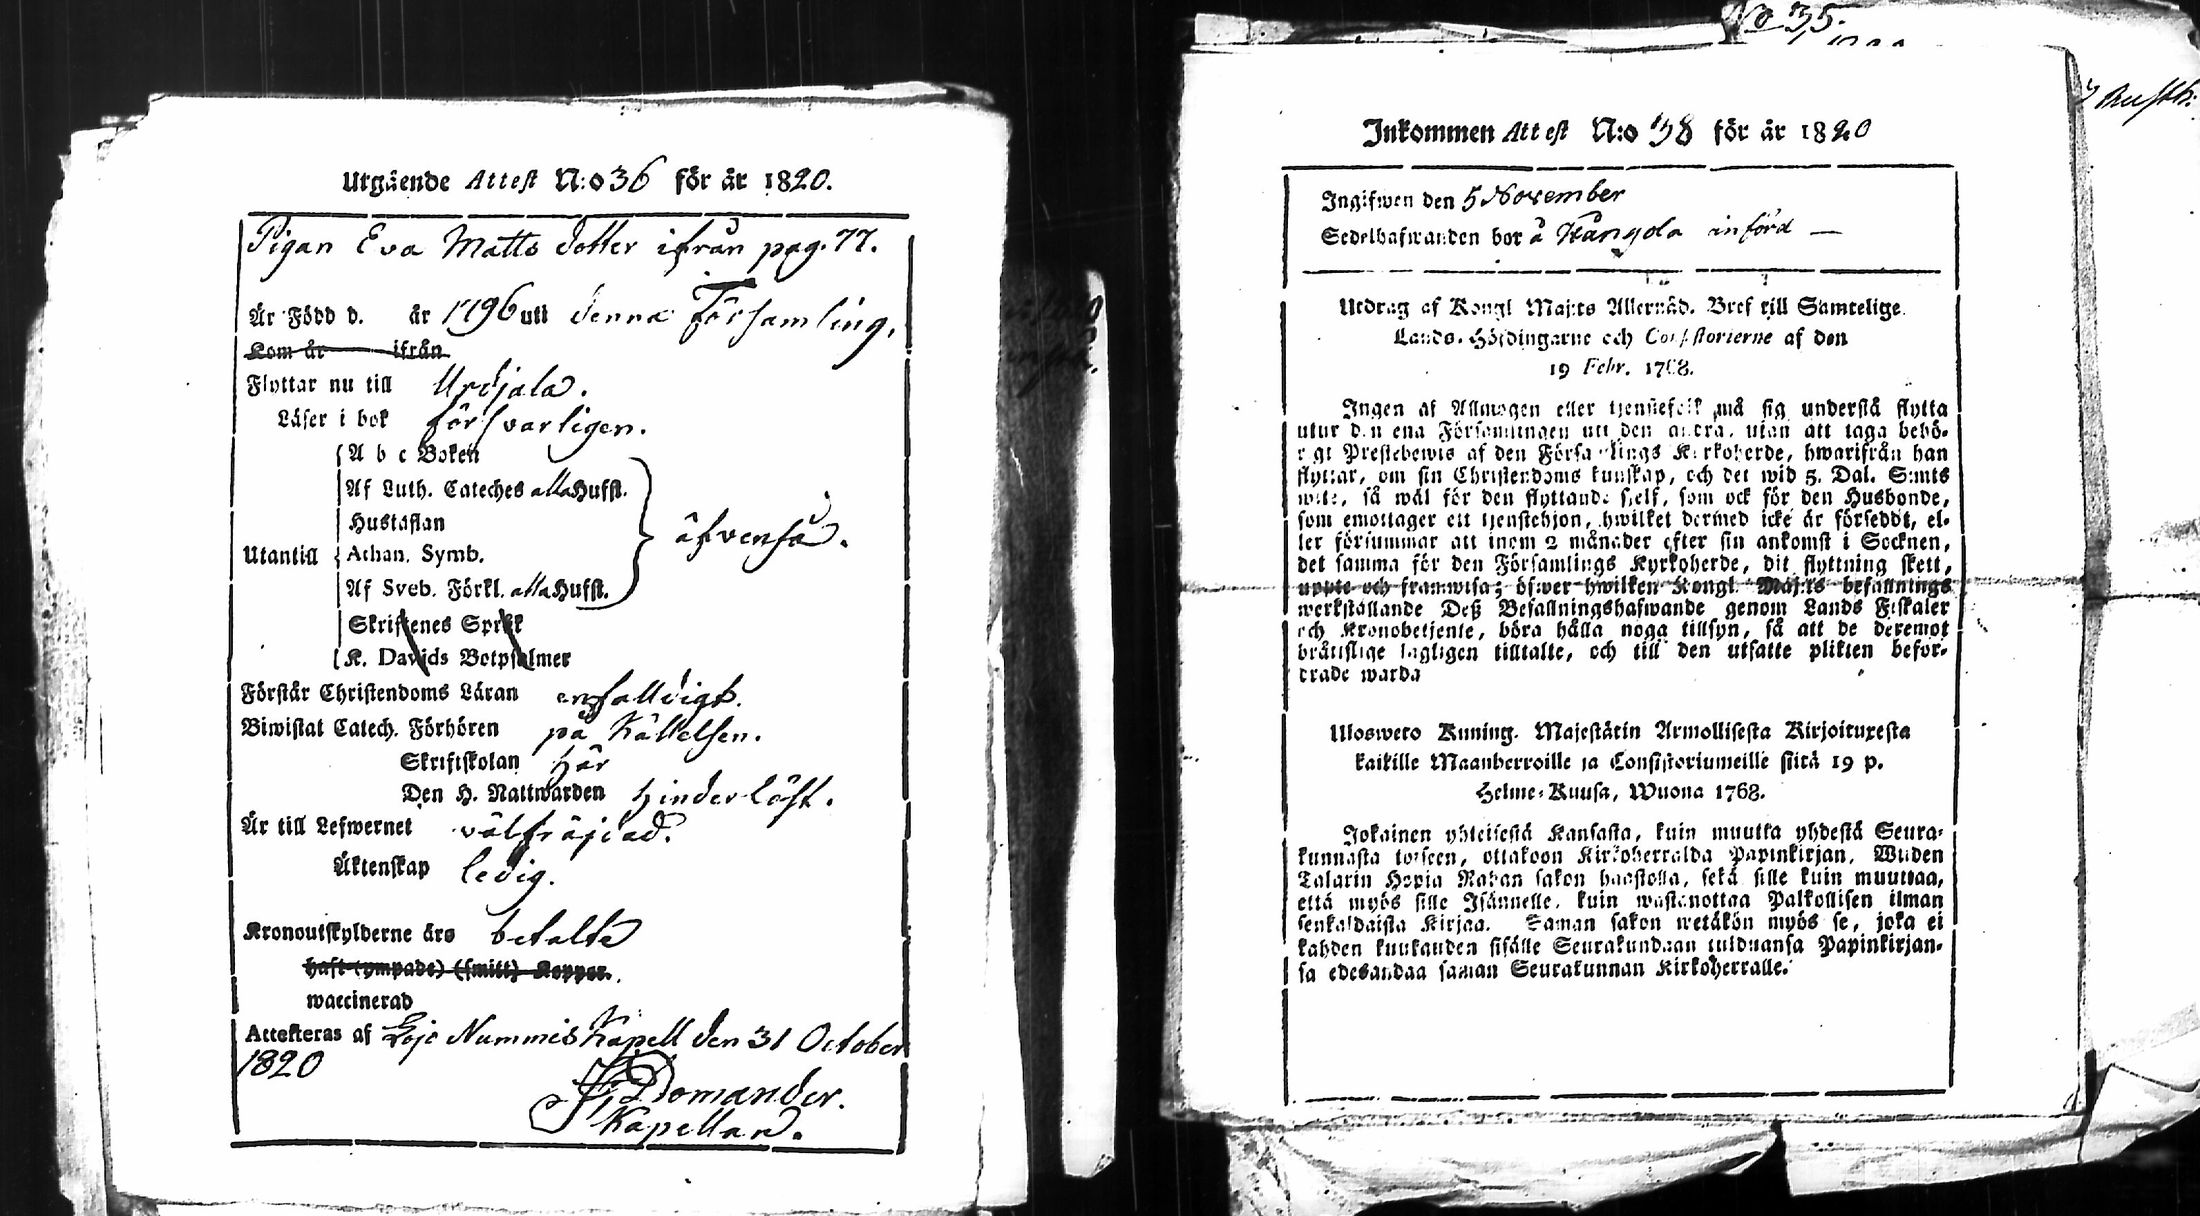 Utgående Attest N:o 36 för år 1820.
Pigan Eva Matts dotter ifrån pag. 77.
Är Född d. år 1796 uti denna Församling,
Kom år ifrån
Flyttar nu till Urdjala.
Läser i bok försvarligen.
A b c Boken
Af Luth. Cateches alla Hufst.
Hustaflan
Utantill Athan. Symb. äfvenså.
Af Sveb. Förkl. alla Hufst.
Skriftenes Språk
K. Davids Botpsalmer
Förstår Christendoms Läran enfalldigt.
Biwistat Catech. Förhören på Kallelsen.
Skriftskolan här
Den H. Nattwarden hinderlöst.
Är till Lefwernet välfräjdad.
Äktenskap ledig.
Kronoutskylderne äro betalte
haft (ympade) (smitt) Koppor.
waccinerad
Attesteras af Lojo Nummis Kapell den 31 October
1820
Domander.
Kapellan.
No 35.
Rusth:
Inkommen Attest N:o 38 för år 1820
Ingifwen den 5 November
Sedelhafwanden bor å Kangola införd —
Utdrag af Kongl Maj:ts Allernåd. Bref till Samtelige
Lands-Höfdingarne och Consistorierne af den
19 Febr. 1768.
Ingen af Allmogen eller tjenstefolk må sig understå flytta
utur den ena Församlingen uti den andra, utan att taga behö-
rigt Prestebewis af den Församlings Kyrkoherde, hwarifrån han
flyttar, om sin Christendoms kunskap, och det wid 5. Dal. S:mts
wite, så wäl för den flyttande sjelf, som ock för den Husbonde,
som emottager ett tjenstehjon, hwilket dermed icke är försedt, el-
ler försummar att inom 2 månader efter sin ankomst i Socknen,
det samma för den Församlings Kyrkoherde, dit flyttning skett,
uppte och framwisa; öfwer hwilken Kongl Maj:ts befallnings
werkställande Deß Befallningshafwande genom Lands Fiskaler
och Kronobetjente, böra hålla noga tillsyn, så att de deremot
brättslige lagligen tilltalte, och till den utsatte plikten befor-
drade warda
Uloswero Kuning. Majestätin Armollisesta Kirjoituxesta
kaikille Maanherroille ja Consistoriumeille siitä 19 p.
Helme-Kuusa, Wuona 1768.
Jokainen yhteisestä Kansasta, kuin muutta yhdestä Seura-
kunnasta toiseen, ottakoon Kirkoherralda Papinkirjan, Wiiden
Talarin Hopia Rahan sakon haastolla, sekä sille kuin muuttaa,
että myös sille Isännelle, kuin wastanottaa Palkollisen ilman
senkaldaista Kirjaa. Saman sakon wetäkön myös se, joka ei
kahden kuukauden sisälle Seurakundaan tulduansa Papinkirjan-
sa edesandaa saman Seurakunnan Kirkoherralle.